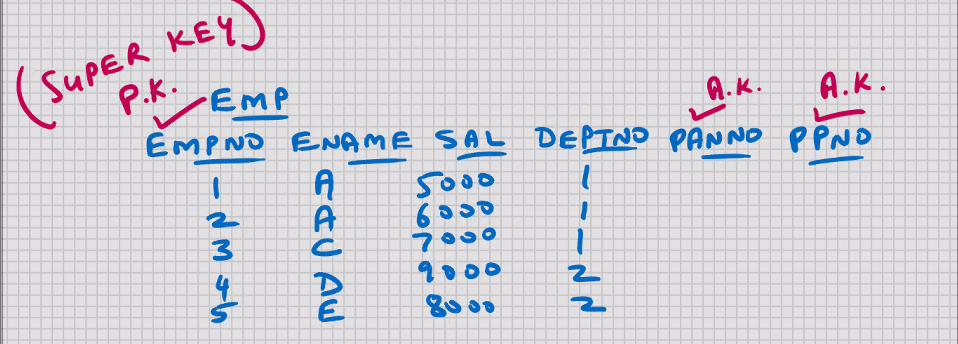 (SUPER KEY)
P.K. A.K. A.K.
EMP
EMPNO ENAME SAL DEPTNO PANNO PPNO
1 A 5000 1
2 A 6000 1
3 C 7000 1
4 D 9000 2
5 E 8000 2